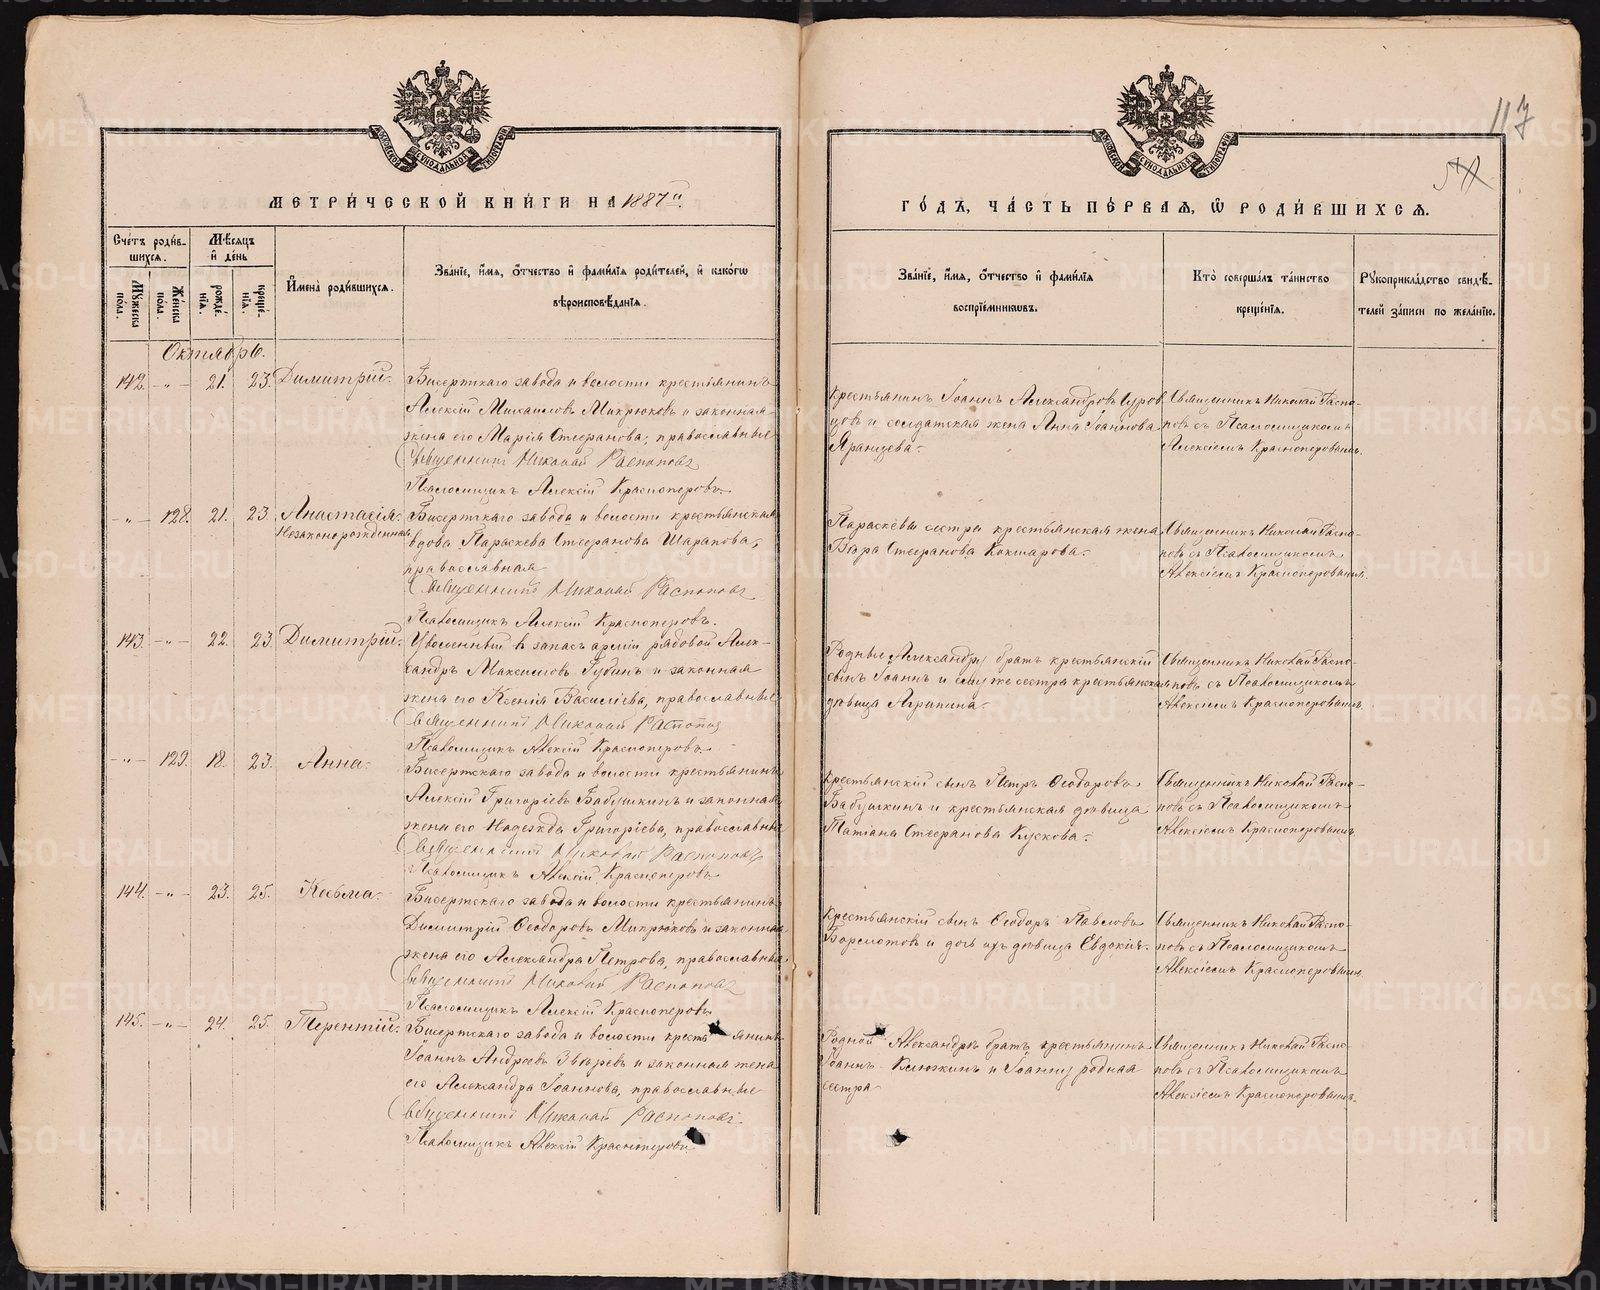 117
МОСКОВСКОЙ СѴНОДАЛЬНОЙ ТИПОГРАФІИ
МОСКОВСКОЙ СѴНОДАЛЬНОЙ ТИПОГРАФІИ
МЕТРИ́ЧЕСКОЙ КНИ́ГИ НА 1887й
ГО́ДЪ, ЧА́СТЬ ПЕ́РВАѦ, Ѡ РОДИ́ВШИХСѦ.
Счетъ роди́в-
шихсѧ.
Мѣ́сѧцъ
и҆ де́нь
Мꙋжеска пола.
Же́нска пола.
рожде́-
нїѧ.
креще́-
нїѧ.
И҆мена̀ роди́вшихсѧ.
Зва́нїе, и҆́мѧ, ѻ҆́тчество и҆ фами́лїѧ роди́телей, и҆ како́гѡ
вѣроисповѣ́данїѧ.
Зва́нїе, и҆́мѧ, ѻ҆́тчество и҆ фами́лїѧ
воспрїе́мникѡвъ.
Кто̀ соверша́лъ та́инство
креще́нїѧ.
Рꙋкоприкла́дство свидѣ́-
телей за́писи по жела́нїю.
Октябрь.
142. -"- 21. 23. Димитрій.
Бисертскаго завода и волости крестьянинъ
Алексій Михаиловъ Микрюковъ и законная
жена его Марія Стефанова, православные
Священникъ Николай Распоповъ
Псаломщикъ Алексій Красноперовъ.
Крестьянинъ Іоаннъ Александровъ
и солдатская жена Анна Іоаннова
Яранцева.
Священникъ Николай Распо-
повъ съ Псаломщикомъ
Алексіемъ Красноперовымъ.
-"- 128. 21. 23. Анастасія.
Незаконорожденная
Бисертскаго завода и волости крестьянская
вдова Параскева Стефанова Шарапова,
православная
Священникъ Николай Распоповъ
Псаломщикъ Алексій Красноперовъ.
Параскевы сестра крестьянская жена
Вѣра Стефанова Кокшарова.
Священникъ Николай Распо-
повъ съ Псаломщикомъ
Алексіемъ Красноперовымъ.
143. -"- 22. 23. Димитрій.
Уволенный въ запасъ арміи рядовой Алек-
сандръ Максимовъ Губинъ и законная
жена его Ксенія Василіева, православные
Священникъ Николай Распоповъ
Псаломщикъ Алексій Красноперовъ.
Родные Александру братъ крестьянскій
сынъ Іоаннъ и ему же сестра крестьянская
дѣвица Агрипина.
Священникъ Николай Распо-
повъ съ Псаломщикомъ
Алексіемъ Красноперовымъ.
-"- 129. 18. 23. Анна.
Бисертскаго завода и волости крестьянинъ
Алексій Григоріевъ Бабушкинъ и законная
жена его Надежда Григоріева, православные
Священникъ Николай Распоповъ
Псаломщикъ Алексій Красноперовъ
Крестьянскій сынъ Петръ Ѳеодоровъ
Бабушкинъ и крестьянская дѣвица
Татіана Стефанова Кускова.
Священникъ Николай Распо-
повъ съ Псаломщикомъ
Алексіемъ Красноперовымъ.
144. -"- 23. 25. Косьма.
Бисертскаго завода и волости крестьянинъ
Димитрій Ѳеодоровъ Микрюковъ и законная
жена его Александра Петрова, православные
Священникъ Николай Распоповъ
Псаломщикъ Алексій Красноперовъ
Крестьянскій сынъ Ѳеодоръ Павловъ
и дочь ихъ дѣвица Евдокія.
Священникъ Николай Распо-
повъ съ Псаломщикомъ
Алексіемъ Красноперовымъ.
145. -"- 24. 25. Терентій.
Бисертскаго завода и волости крестьянинъ
Іоаннъ Андреевъ Звѣревъ и законная жена
его Александра Іоаннова, православные
Священникъ Николай Распоповъ
Псаломщикъ Алексій Красноперовъ
Родной Александры братъ крестьянинъ
Іоаннъ Клюжкинъ и Іоанну родная
сестра
Священникъ Николай Распо-
повъ съ Псаломщикомъ
Алексіемъ Красноперовымъ.
METRIKI.GASO-URAL.RU